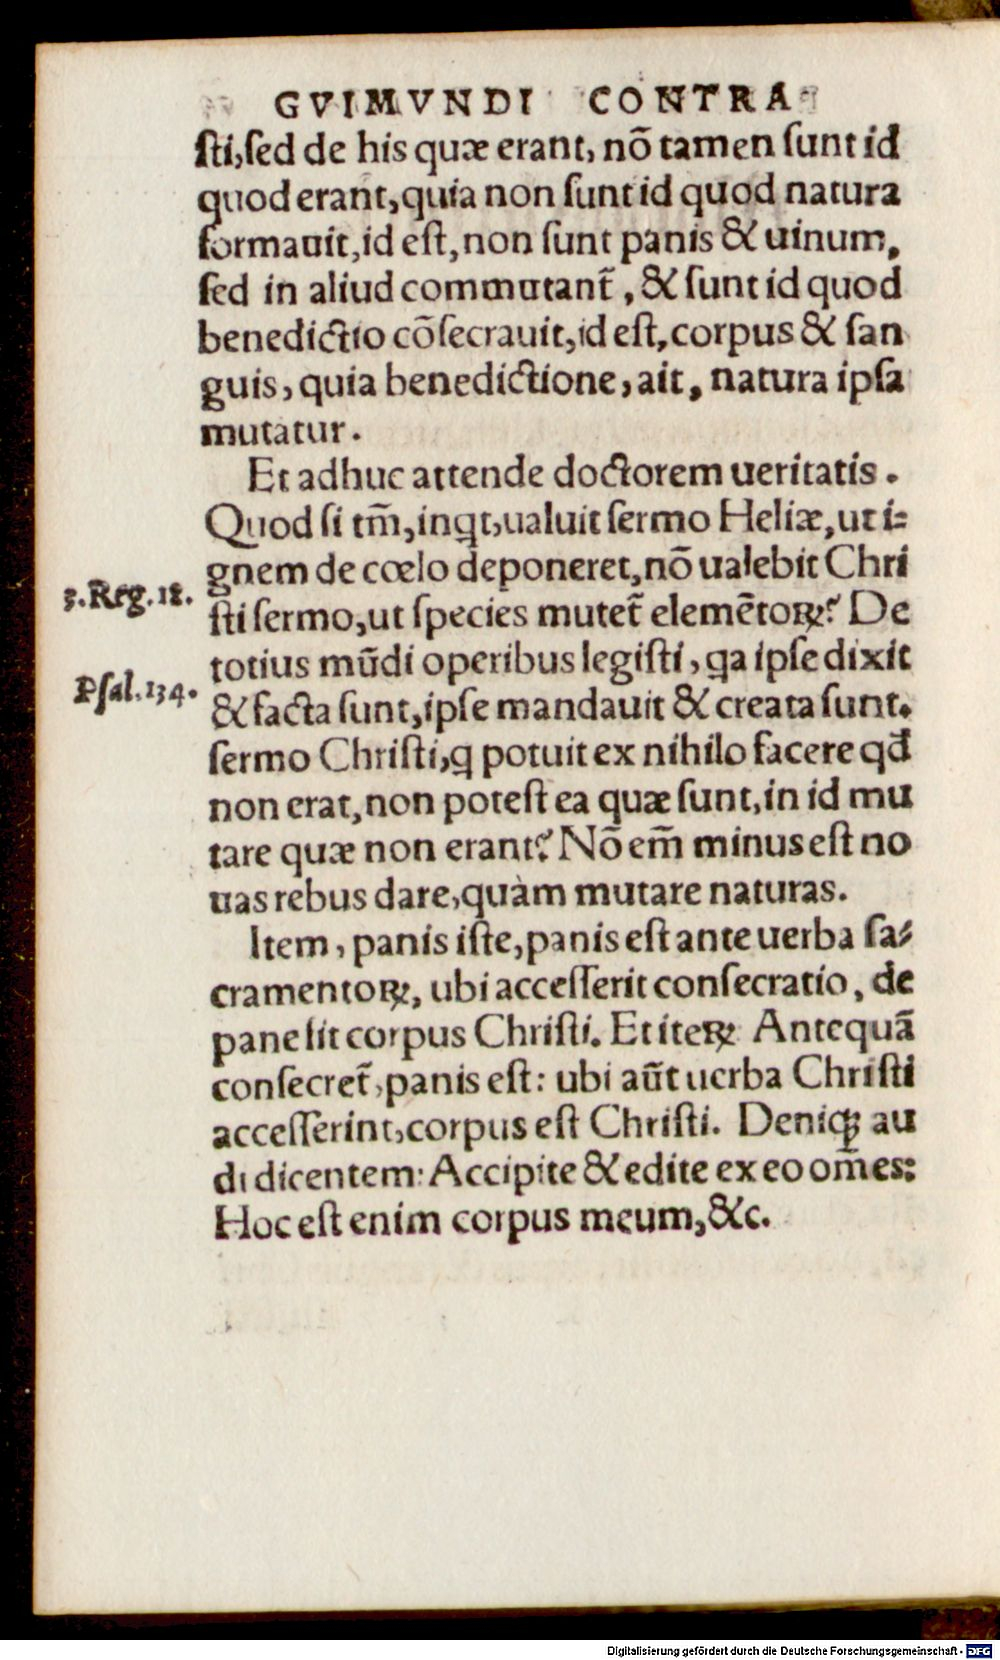 GVIMVNDI CONTRA
sti,sed de his quæ erant, nõ tamen sunt id
quod erant,quia non sunt id quod natura
formauit,id est,non sunt panis & uinum,
sed in aliud commutant̃ , & sunt id quod
benedictio cõsecrauit,id est,corpus & san
guis, quia benedictione, ait, natura ipsa
mutatur.
Et adhuc attende doctorem ueritatis.
Quod si tm̃, inqt,ualuit sermo Heliæ,ut i=
gnem de cœlo deponeret,nõ ualebit Chri
3.Reg.18.
sti sermo,ut species mutet̃ elemẽtoꝝ? De
totius mũdi operibus legisti, qa ipse dixit
Psal.134.
& facta sunt,ipse mandauit & creata sunt.
sermo Christi,q potuit ex nihilo facere qđ
non erat,non potest ea quæ sunt,in id mu
tare quæ non erant? Nõ em̃ minus est no
uas rebus dare,quàm mutare naturas.
Item, panis iste,panis est ante uerba sa-
cramentoꝝ, ubi accesserit consecratio, de
pane fit corpus Christi. Et iteꝝ Antequã
consecret̃,panis est: ubi aũt uerba Christi
accesserint,corpus est Christi. Deniqꝫ au
di dicentem: Accipite & edite ex eo om̃es:
Hoc est enim corpus meum,&c.
Digitalisierung gefördert durch die Deutsche Forschungsgemeinschaft - DFG